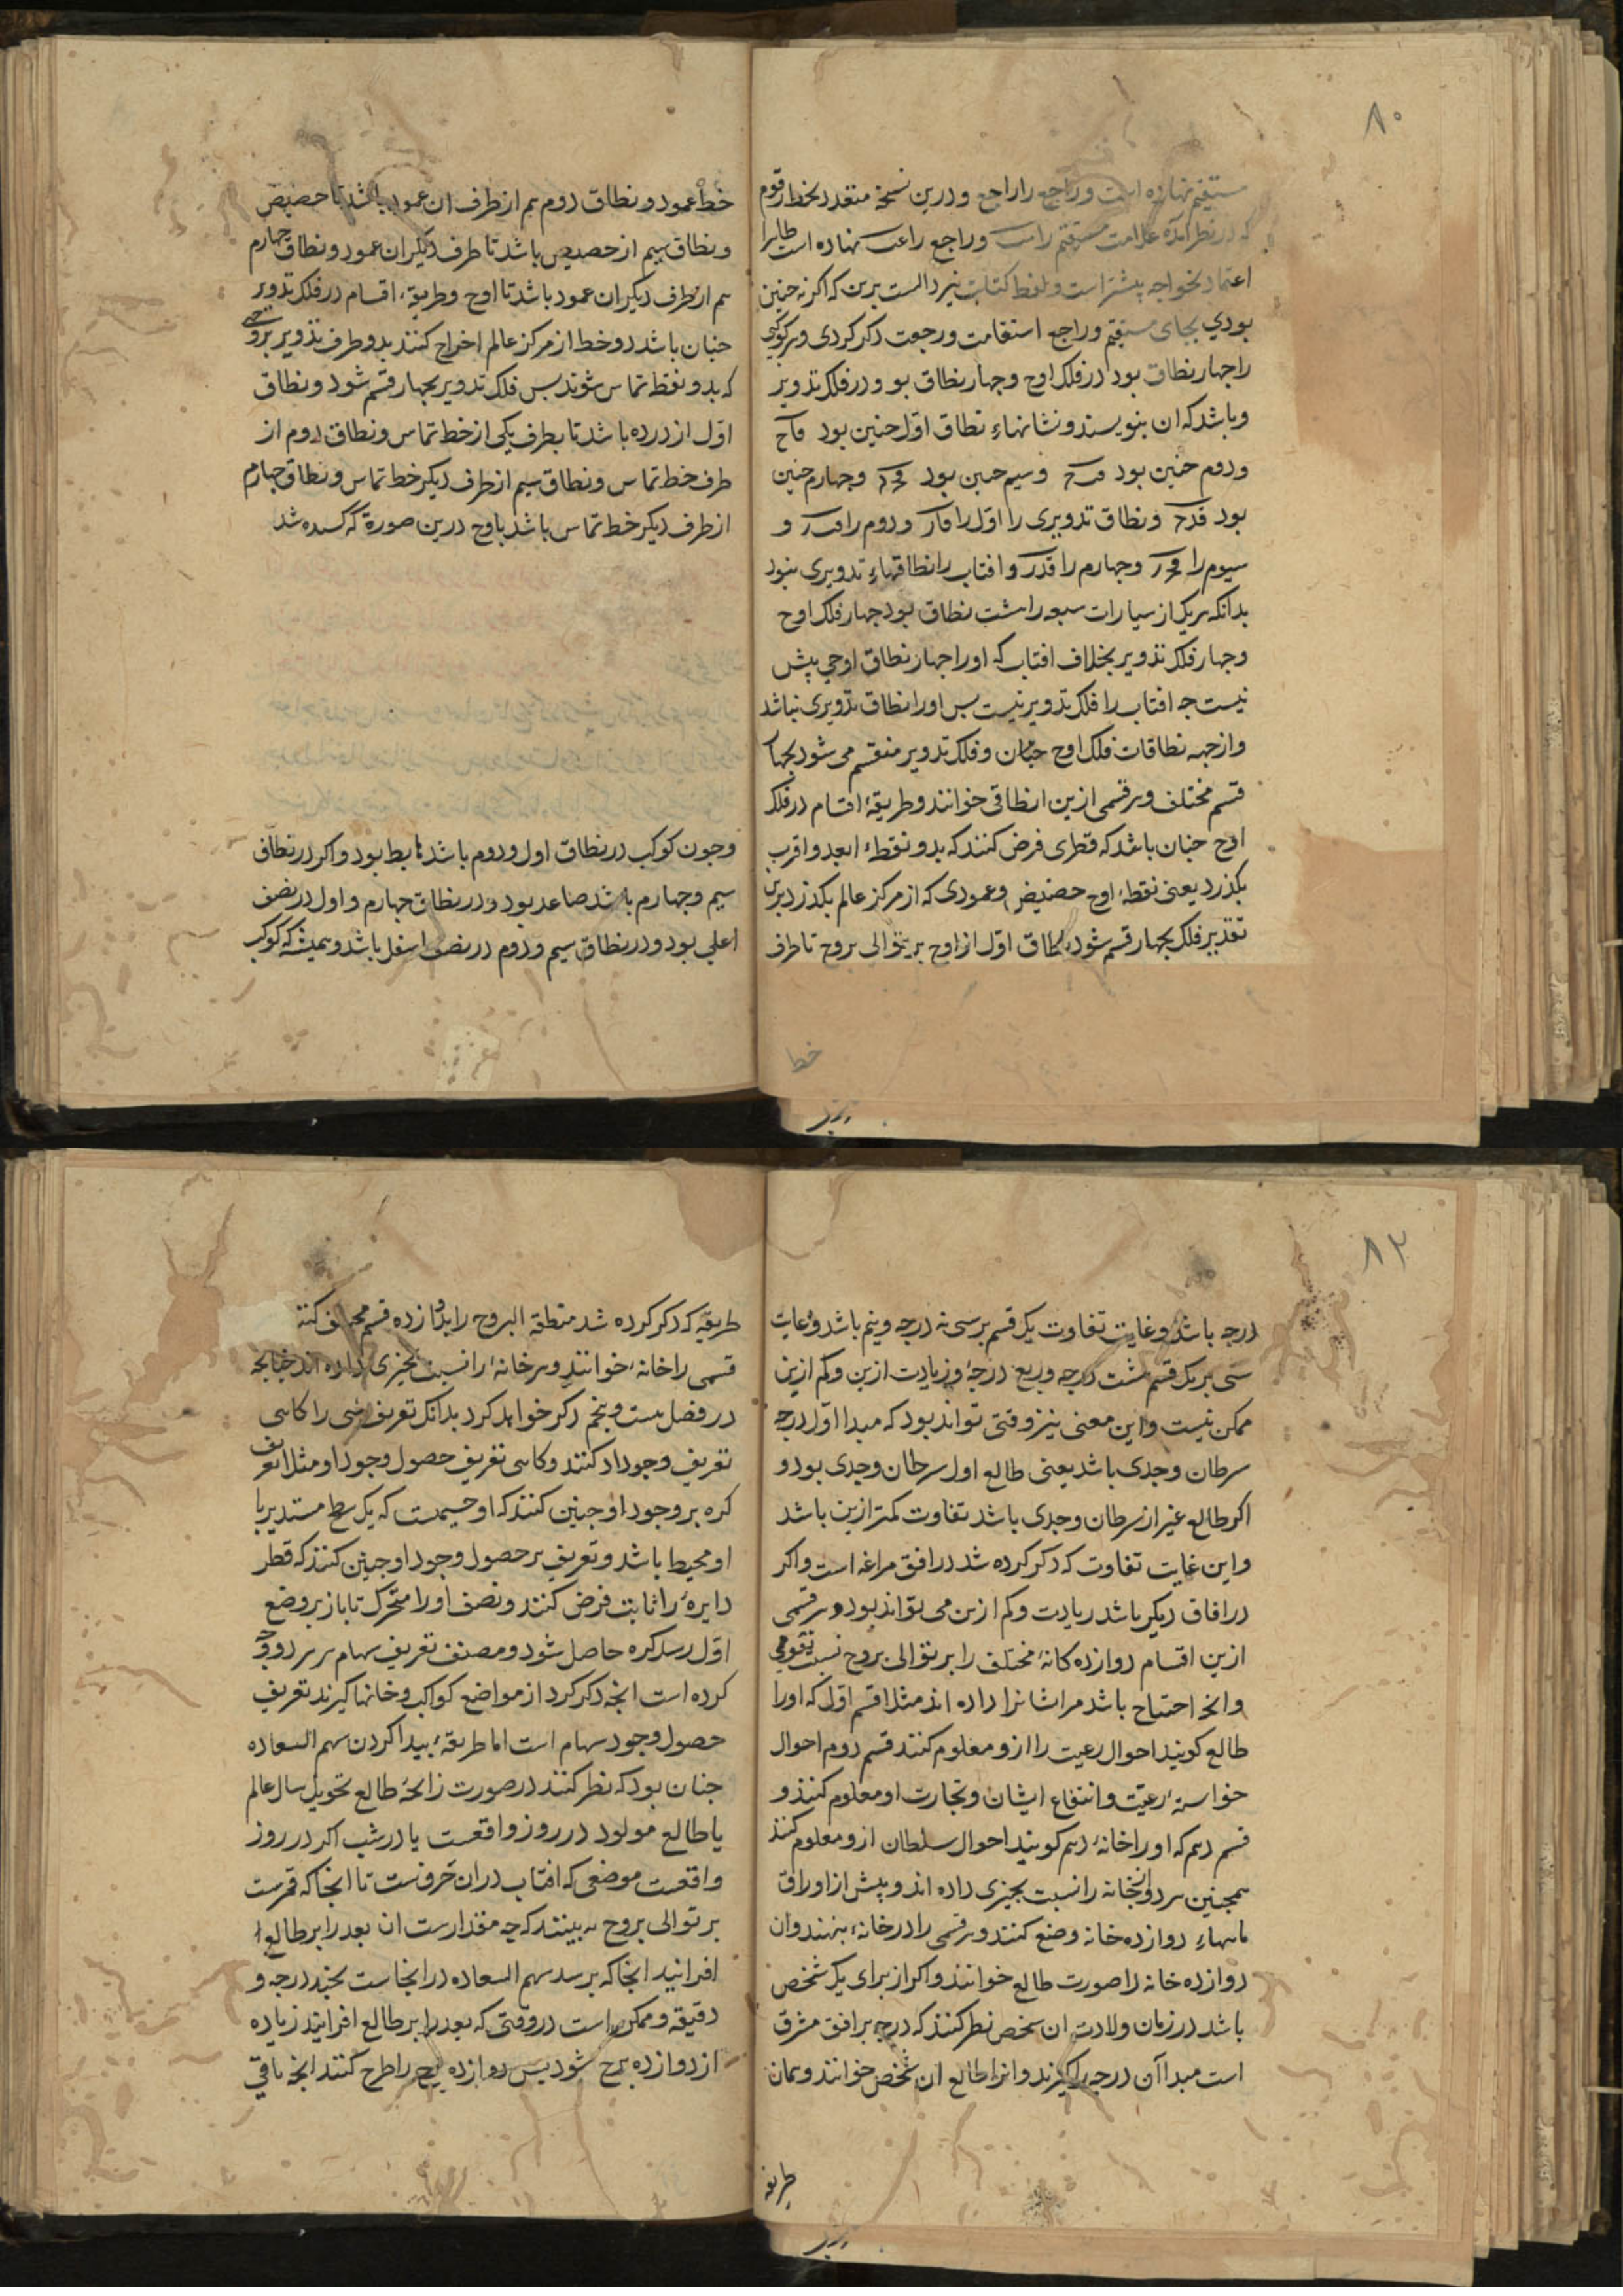 ۸۰
مستقیم نهاده است و راجع را راجع و درین نسخهٔ متعدد بخط رقوم
که در نظر آمده علامت مستقیم را مت و راجع را عب نهاده است ظاهرا
اعتماد بخواجه بیشتر است و لفظ کتاب نیز دالست برین که اکر نه چنین
بودی بجای مستقیم و راجع استقامت و رجعت ذکر کردی و هر کوکبی
را چهار نطاق بود در فلک اوج و چهار نطاق بو و در فلک تدویر
و باشد که ان بنویسند و نشانهاء نطاق اوّل چنین بود
و دوم چنین بود و سیم چنین بود و چهارم چنین
بود و نطاق تدویری را اوّل را و دوم را و
سیوم را و چهارم را و افتاب را نطاقهاء تدویری نبود
بدانکه هر یک از سیارات سبعه را هشت نطاق بود چهار فلک اوج
و چهار فلک تدویر بخلاف افتاب که او را چهار نطاق اوجی بیش
نیست چه افتاب را فلک تدویر نیست بس او را نطاق تدویری نباشد
و از جهه نطاقات فلک اوج چنان و فلک تدویر منقسم می شود بچهار
قسم مختلف و هر قسمی ازین را نطاقی خوانند و طریقهٔ اقسام در فلک
اوج چنان باشد که قطری فرض کنند که بدو نقطهٔ ابعد و اقرب
بکذرد یعنی نقطهٔ اوج حضیض و عمودی که از مرکز عالم بکذرد برین
تقدیر فلک بچهار قسم شود نطاق اوّل از اوج بر توالی بروج تا طرف
خط
خط عمود و نطاق دوم هم از طرف ان عمود باشد تا حضیض
و نطاق سیم از حضیض باشد تا طرف دیکر ان عمود و نطاق چهارم
هم از طرف دیکر ان عمود باشد تا اوج و طریقهٔ اقسام در فلک تدویر
چنان باشد دو خط از مرکز عالم اخراج کنند بدو طرف تدویر بروجهی
که بدو نقطه تماس شوند بس فلک تدویر بچهار قسم شود و نطاق
اوّل از ذروه باشد تا بطرف یکی از خط تماس و نطاق دوم از
طرف خط تماس و نطاق سیم از طرف دیکر خط تماس و نطاق چهارم
از طرف دیکر خط تماس باشد باوج درین صورة که کشیده شد
و چون کوکب در نطاق اول و دوم باشد هابط بود و اکر در نطاق
سیم و چهارم باشد صاعد بود و در نطاق چهارم و اول در نصف
اعلی بود و در نطاق سیم و دوم در نصف اسفل باشد و همیشه که کوکب
۸۲
درجه باشد و غایت تفاوت یک قسم بر سی نه درجه و نیم باشد و غایت
سی بر یک قسم هشت درجه و ربع درجهٔ و زیادت ازین و کم ازین
ممکن نیست و این معنی نیز وقتی تواند بود که مبدا اوّل درجه
سرطان و جدی باشد یعنی طالع اول سرطان و جدی بود و
اکر طالع غیر از سرطان و جدی باشد تفاوت کمتر ازین باشد
و این غایت تفاوت که ذکر کرده شد در افق مراغه است و اکر
در افاق دیکر باشد زیادت و کم ازین می تواند بود و هر قسمی
ازین اقسام دوازده کانهٔ مختلف را بر توالی بروج نسبت بقومی
و انچه احتیاج باشد مر اشانرا داده اند مثلا قسم اوّل که او را
طالع کویند احوال رعیت را ازو معلوم کنند قسم دوم احوال
خواستهٔ رعیت و انتفاع ایشان و تجارت او معلوم کنند و
قسم دهم که او را خانهٔ دهم کویند احوال سلطان ازو معلوم کنند
همچنین هر دوانخانه را نسبت بچیزی داده اند و بیش از اوراق
ماهیاء دوازده خانه وضع کنند و هر قسمی را در خانهٔ بنهند و ان
دوازده خانه را صورت طالع خوانند و اکر از برای یک شخص
باشد در زمان ولادت ان شخص نظر کنند که درجه بر افق مشرق
است مبدا آن درجه را کیرند و انرا طالع ان شخص خوانند و بمان
طریقه
طریقهٔ که ذکر کرده شد منطقه البروج را بدوازده قسم مختلف کنند
قسمی را خانهٔ خوانند و هر خانهٔ را نسبت بچیزی داده اند چنانچه
در فصل بیست و پنجم ذکر خواهد کرد بدانک تعریف شی را کاهی
تعریف وجود او کنند و کاهی تعریف حصول وجود او مثلا تعریف
کره بر وجود او چنین کنند که او جسمیست که یک سطح مستدیر با
او محیط باشد و تعریف بر حصول وجود او چنین کنند که قطر
دایرهٔ را ثابت فرض کنند و نصف او را متحرک تا باز بر وضع
اوّل رسد کره حاصل شود و مصنف تعریف سهام بر هر دو وجه
کرده است انچه ذکر کرد از مواضع کواکب و خانها کیرند تعریف
حصول وجود سهام است اما طریقهٔ بیدا کردن سهم السعاده
چنان بود که نظر کنند در صورت زایچهٔ طالع تحویل سال عالم
یا طالع مولود در روز واقعست یا در شب اکر در روز
واقعست موضعی که افتاب دران حرفست تا انجا که قمرست
بر توالی بروج به بینند که چه مقدارست ان بعد را بر طالع
افزایند انجا که برسد سهم السعاده در انجاست بچند درجه و
دقیقه و ممکن است در وقتی که بعد را بر طالع افزایند زیاده
از دوازده برج شود بس دوازده برج را طرح کنند انچه باقی